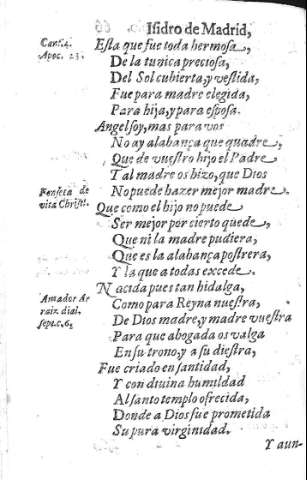 Isidro de Madrid,
Cant. 4.
Apoc. 23.
Esta que fue toda hermosa,
De la tunica preciosa,
Del Sol cubierta, y vestida,
Fue para madre elegida,
Para hija, y para esposa.
Angel soy, mas para vos
No ay alabança que quadre,
Que de vuestro hijo el Padre
Tal madre os hizo, que Dios
No puede hazer mejor madre.
Fonseca de
vita Christi.
Que como el hijo no puede
Ser mejor por cierto quede,
Que ni la madre pudiera,
Que es la alabança postrera,
Y la que a todas excede.
Amador Ar
raiz. dial.
sept. c. 6.
Nacida pues tan hidalga,
Como para Reyna nuestra,
De Dios madre, y madre vuestra
Para que abogada os valga
En su trono, y a su diestra,
Fue criado en santidad,
Y con diuina humildad
Al santo templo ofrecida,
Donde a Dios fue prometida
Su pura virginidad.
Y aun-